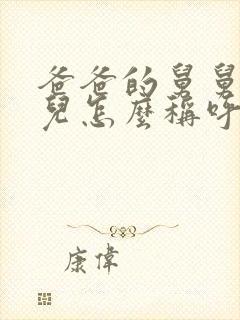 爸爸的舅舅
兒怎麼稱呼
康偉